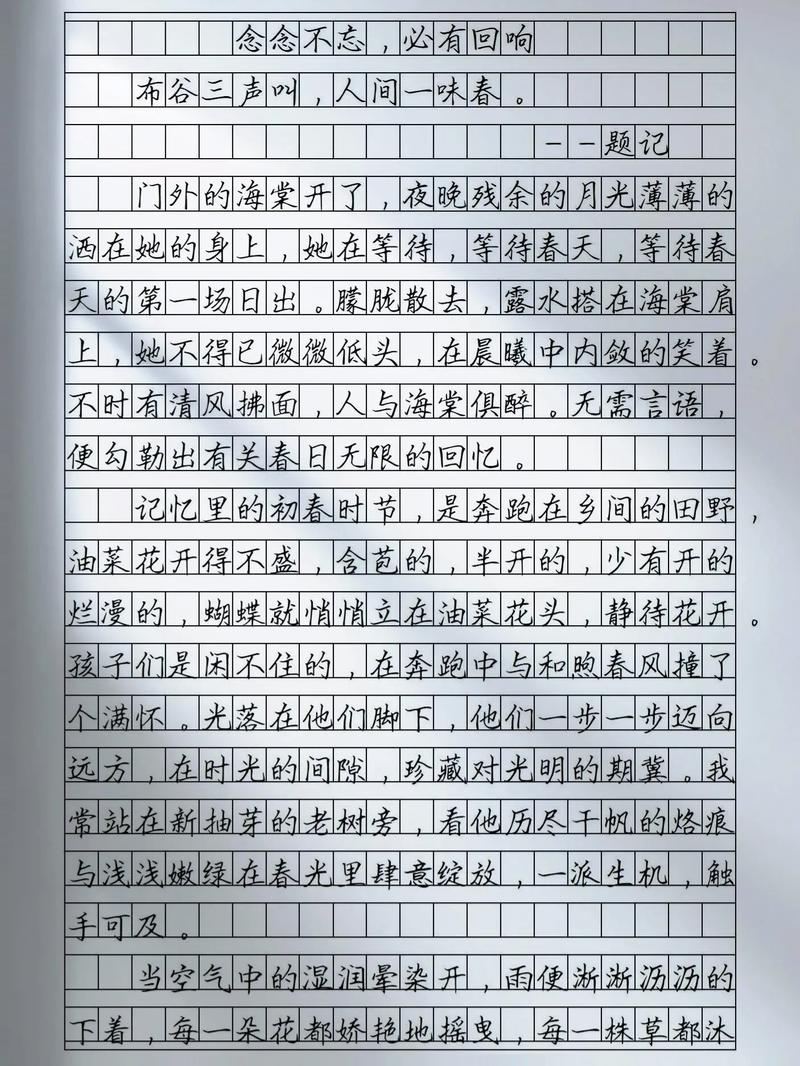 念念不忘，必有回响
布谷三声叫，人间一味春。
--题记
门外的海棠开了，夜晚残余的月光薄薄的
洒在她的身上，她在等待，等待春天，等待春
天的第一场日出。朦胧散去，露水搭在海棠肩
上，她不得已微微低头，在晨曦中内敛的笑着。
不时有清风拂面，人与海棠俱醉。无需言语，
便勾勒出有关春日无限的回忆。
记忆里的初春时节，是奔跑在乡间的田野，
油菜花开得不盛，含苞的，半开的，少有开的
烂漫的，蝴蝶就悄悄立在油菜花头，静待花开。
孩子们是闲不住的，在奔跑中与和煦春风撞了
个满怀。光落在他们脚下，他们一步一步迈向
远方，在时光的间隙，珍藏对光明的期冀。我
常站在新抽芽的老树旁，看他历尽千帆的烙痕
与浅浅嫩绿在春光里肆意绽放，一派生机，触
手可及。
当空气中的湿润晕染开，雨便淅淅沥沥的
下着，每一朵花都娇艳地摇曳，每一株草都沐